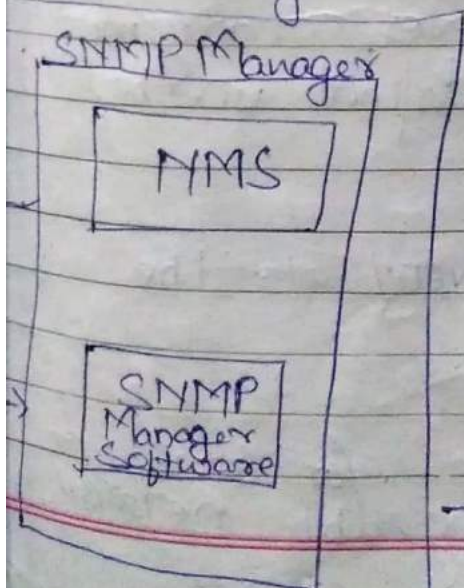 SNMP Manager
NMS
SNMP
Manager
Software